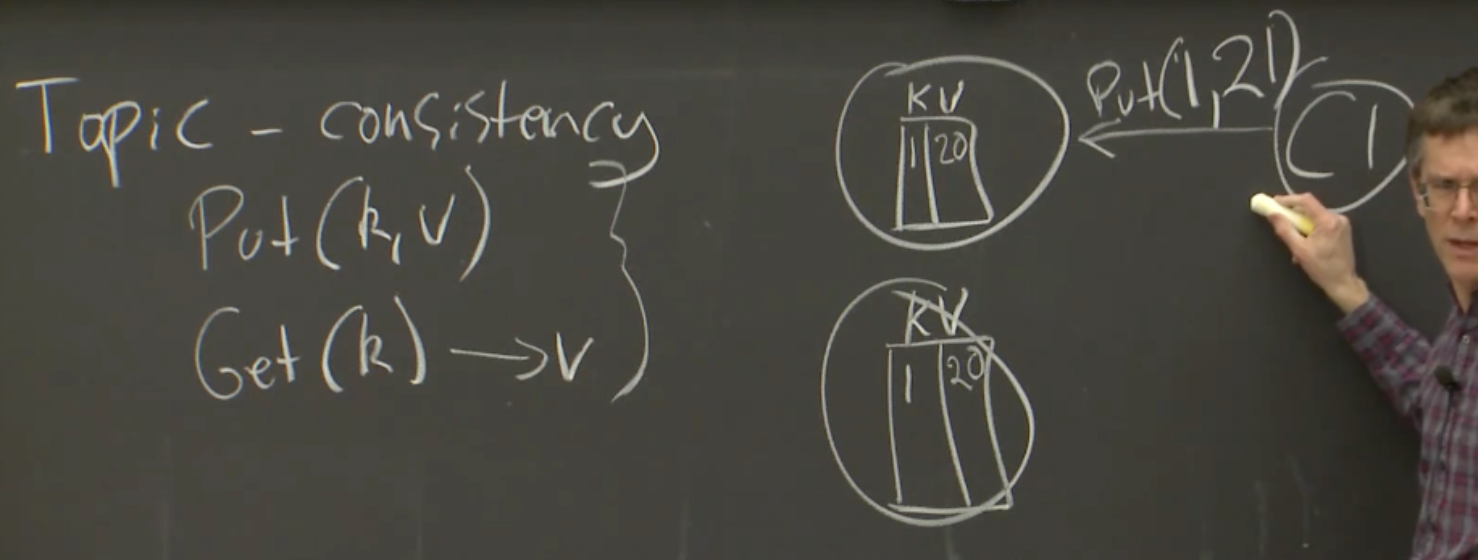 Topic - consistency
Put(k, v)
Get(k) → v
K V
1 20
Put(1, 21)
C1
K V
1 20